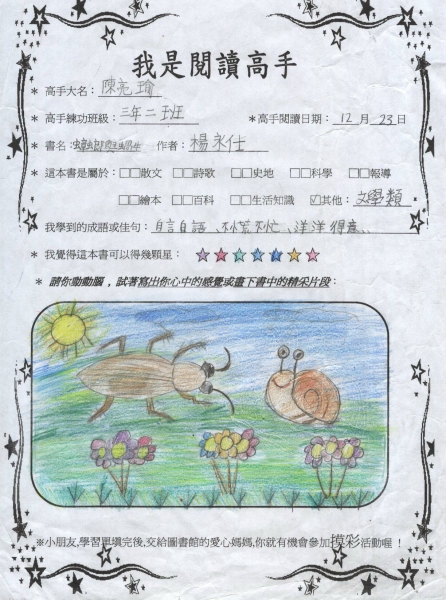 我是閱讀高手
* 高手大名：陳亮瑜
* 高手練功班級：三年二班 *高手閱讀日期：12月23日
* 書名： 作者：楊永仕
* 這本書是屬於：□□散文 □□詩歌 □□史地 □□科學 □□報導
□□繪本 □□百科 □□生活知識 ☑其他：文學類
我學到的成語或佳句：自言自語、不慌不忙、洋洋得意、、
* 我覺得這本書可以得幾顆星：☆☆☆☆☆☆☆
* 請你動動腦，試著寫出你心中的感覺或畫下書中的精采片段：
※小朋友,學習單填完後,交給圖書館的愛心媽媽,你就有機會參加摸彩活動喔！